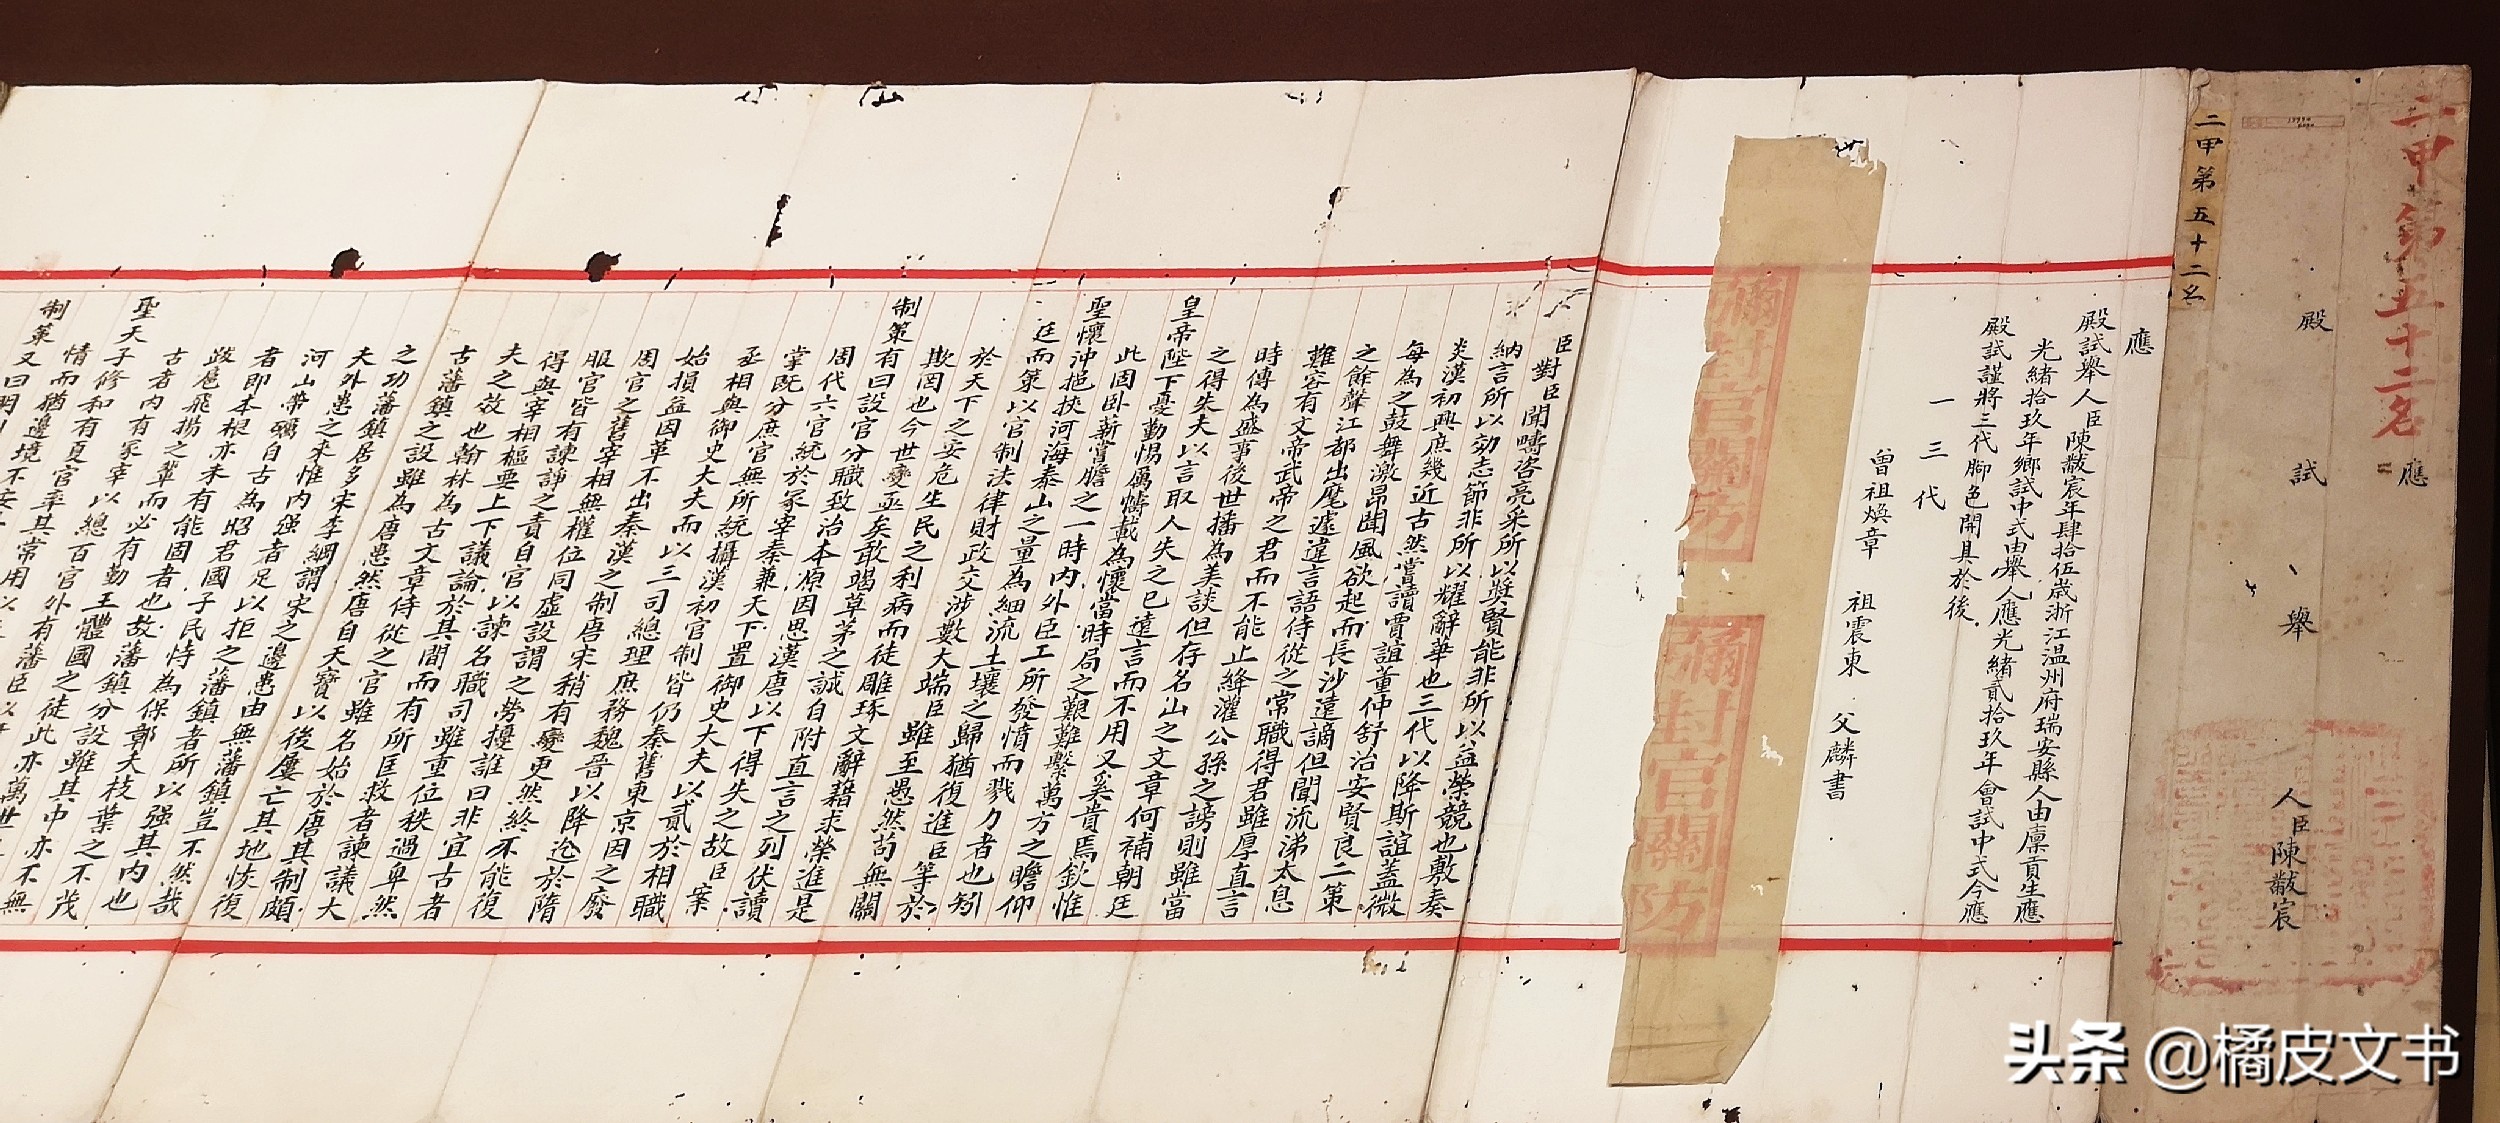 二甲第五十二名
應
殿試舉人臣陳黻宸
二甲第五十二名
應
殿試舉人臣陳黻宸年肆拾伍歲浙江温州府瑞安縣人由廩貢生應
光緒拾玖年鄉試中式由舉人應光緒貳拾玖年會試中式今應
殿試謹將三代脚色開具於後
一三代
曾祖煥章 祖震東 父麟書
彌封官關防
彌封官關防
臣對臣聞疇咨亮采所以獎賢能非所以益榮競也敷奏
納言所以効志節非所以耀辭華也三代以降斯誼蓋微
炎漢初興庶幾近古然嘗讀賈誼董仲舒治安賢良二策
每為之鼓舞激昂聞風欲起而長沙遠謫但聞流涕太息
之餘聲江都出麾遽違言語侍從之常職得君雖厚直言
難容有文帝武帝之君而不能止絳灌公孫之謗則雖當
時傳為盛事後世播為美談但存名山之文章何補朝廷
之得失夫以言取人失之已遠言而不用又奚貴焉欽惟
皇帝陛下憂勤惕厲幬載為懷當時局之艱難繫萬方之瞻仰
此固卧薪嘗膽之一時內外臣工所發憤而戮力者也矧
聖懷沖挹挾河海泰山之量為細流土壤之歸猶復進臣等於
廷而策以官制法律財政交涉數大端臣雖至愚然苟無關
於天下之安危生民之利病而徒雕琢文辭藉求榮進是
欺罔也今世變亟矣敢竭草茅之誠自附直言之列伏讀
制策有曰設官分職致治本原因思漢唐以下得失之故臣案
周代六官統於冢宰秦兼天下置御史大夫以貳於相職
掌既分庶官無所統攝漢初官制皆仍秦舊東京因之廢
丞相與御史大夫而以三司總理庶務魏晉以降迄於隋
始損益因革不出秦漢之制唐宋稍有變更然終不能復
周官之舊宰相無權位同虛設謂之勞擾誰曰非宜古者
服官皆有諫諍之責自官以諫名職司雖重位秩過卑然
得與宰相樞要上下議論於其間而有所匡救者諫議大
夫之效也翰林為古文章侍從之官雖名始於唐其制頗
古藩鎮之設雖為唐患然唐自天寶以後屢亡其地恢復
之功藩鎮居多宋李綱謂宋之邊患由無藩鎮豈不然哉
夫外患之來惟內强者足以拒之藩鎮者所以强其內也
河山帶礪自古為昭君國子民恃為保鄣夫枝葉之不茂
者即本根亦未有能固者也故藩鎮分設雖其中亦不無
跋扈飛揚之輩而必有勤王體國之徒此亦萬世
古者內有冢宰以總百官外有藩臣以
聖天子修和有夏官率其常用以
情而猶邊境不安
制策又曰明